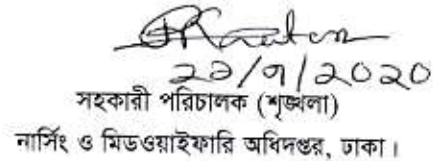 ২১/৭/২০২০
সহকারী পরিচালক (শৃঙ্খলা)
নার্সিং ও মিডওয়াইফারি অধিদপ্তর, ঢাকা।